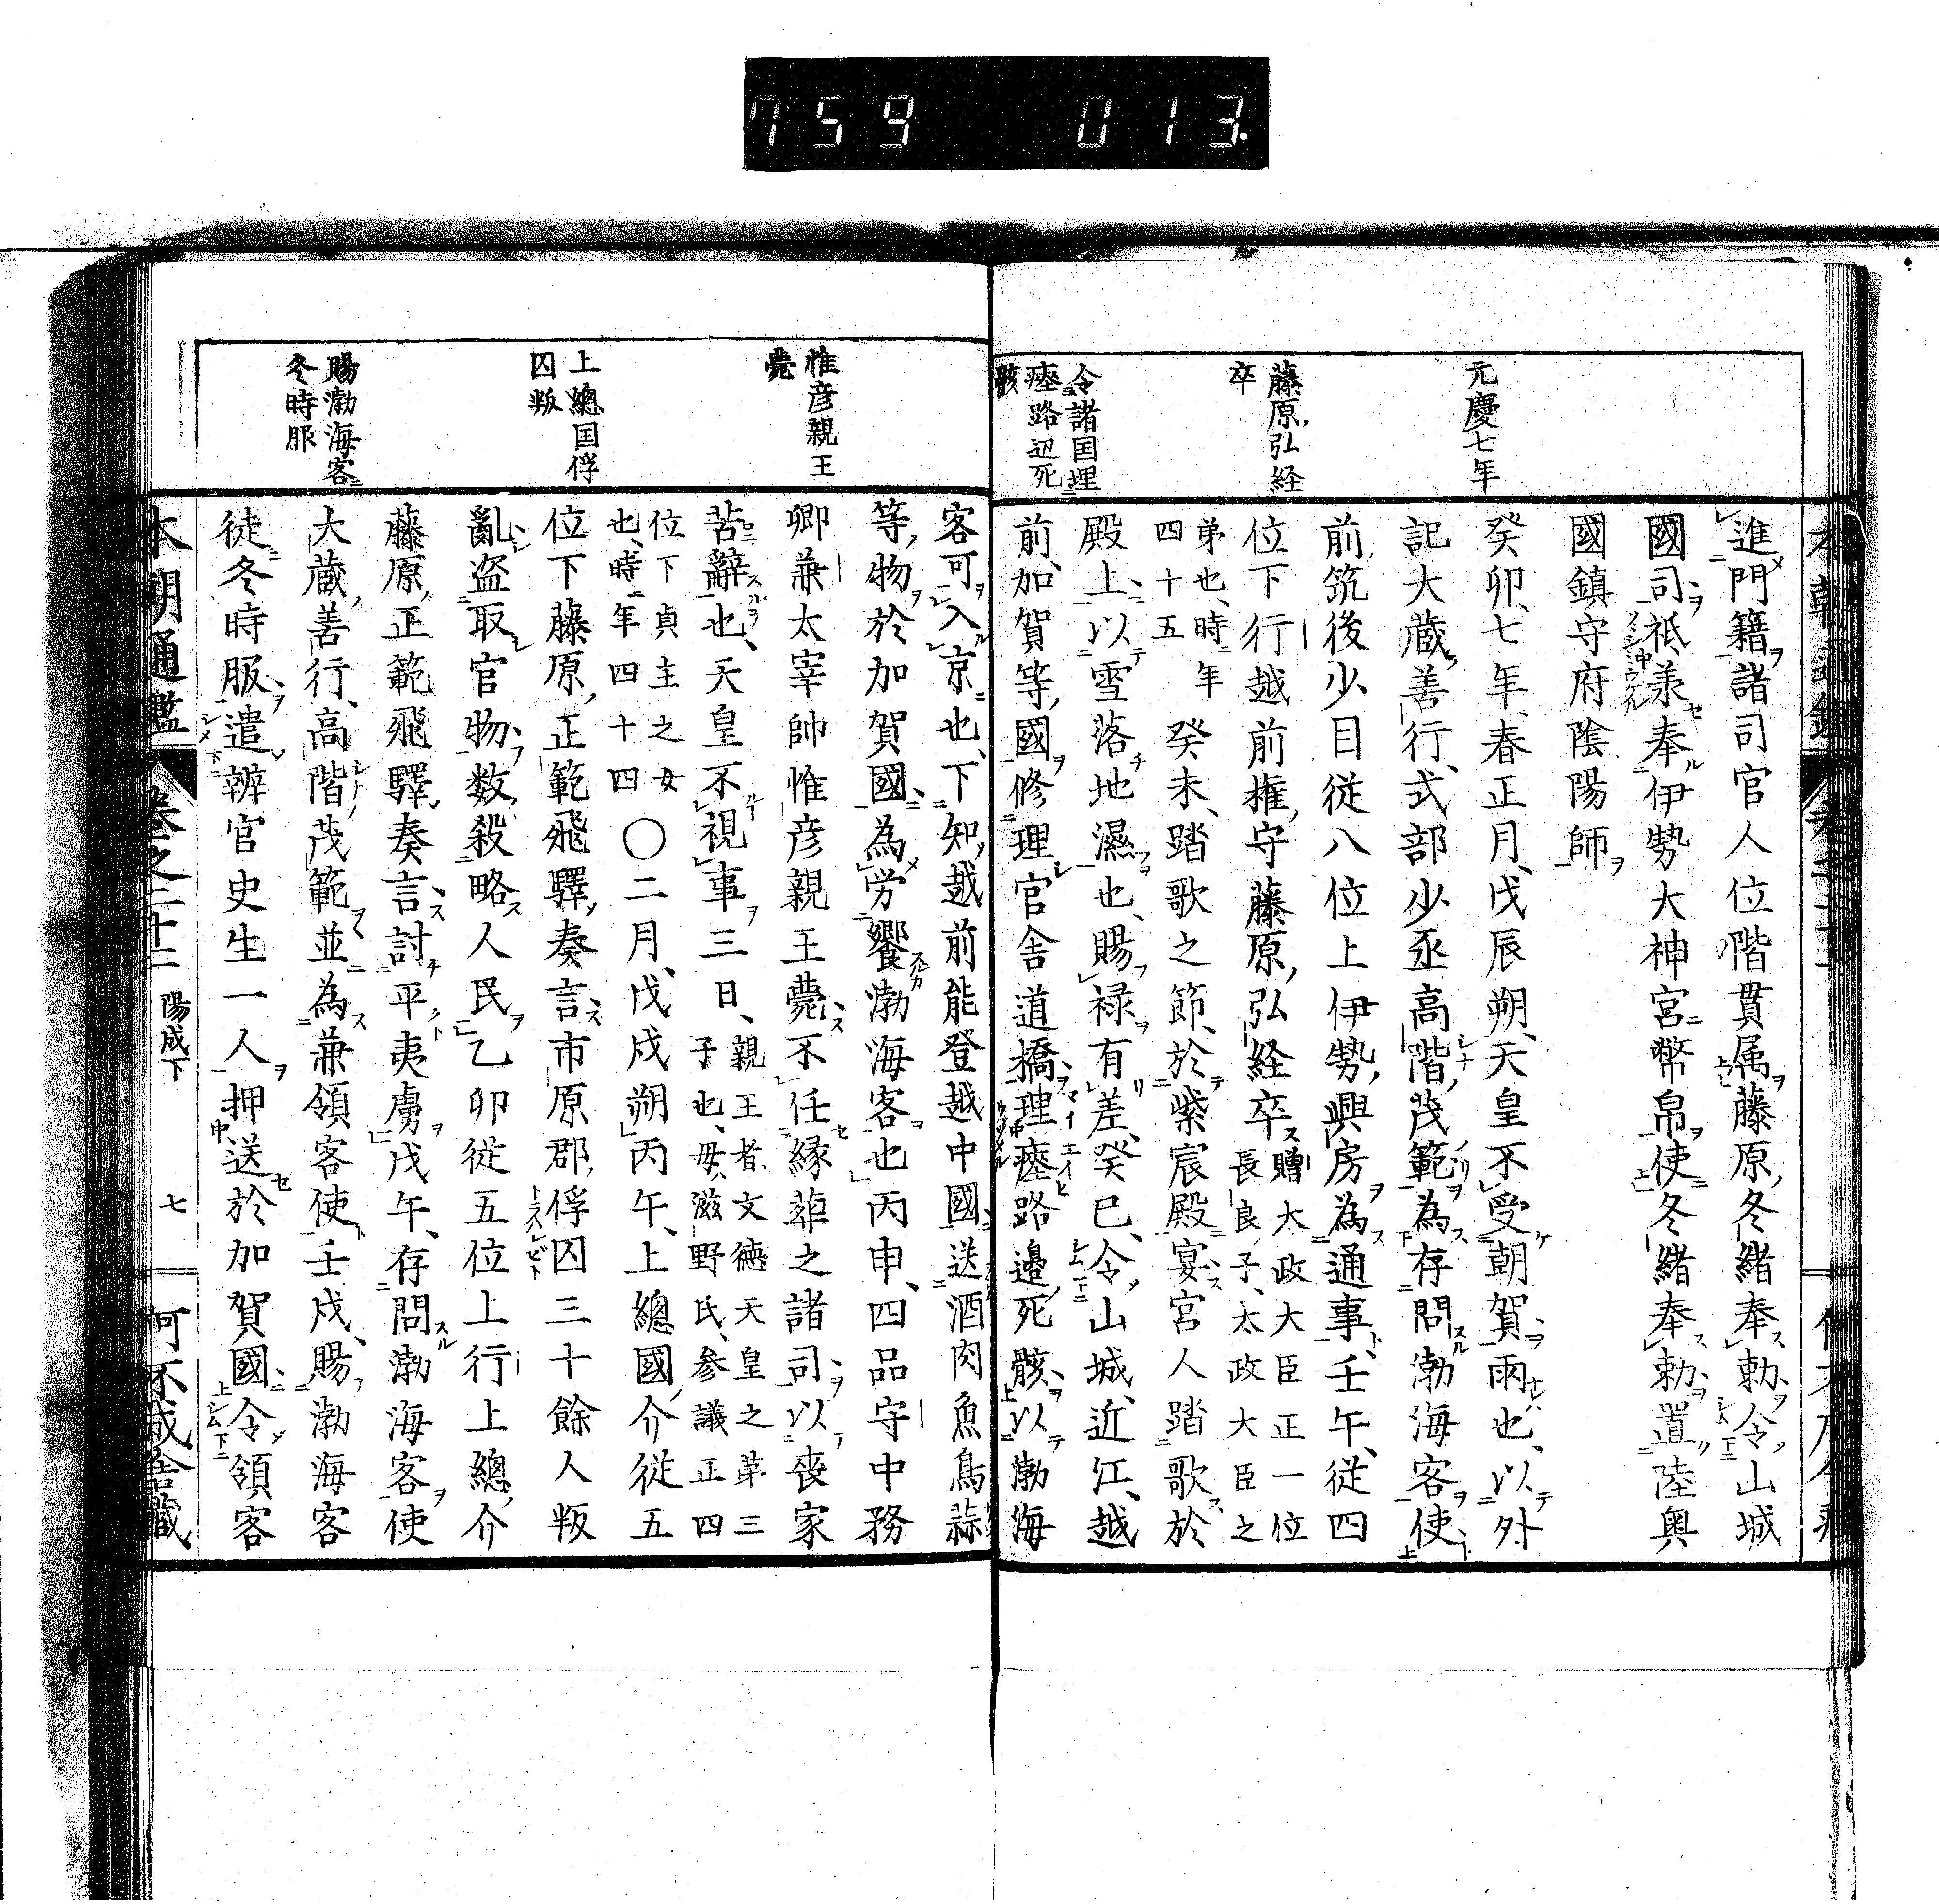 759 013
元慶七年
藤原弘経
卒
令諸国埋
瘞路辺死
骸
進門籍諸司官人位階貫属藤原冬緒奉勅令山城
國司祗承奉伊勢大神宮幣帛使冬緒奉勅置陸奥
國鎮守府陰陽師
癸卯七年春正月戊辰朔天皇不受朝賀雨也以外
記大蔵善行式部少丞高階茂範為存問渤海客使
前筑後少目従八位上伊勢興房為通事壬午従四
位下行越前権守藤原弘経卒贈太政大臣正一位
長良子太政大臣之
弟也時年
四十五癸未踏歌之節於紫宸殿宴宮人踏歌於
殿上以雪落地濕也賜禄有差癸巳令山城近江越
前加賀等國修理官舎道橋埋瘞路邊死骸以渤海
惟彦親王
薨
上總国俘
囚叛
賜渤海客
冬時服
客可入京也下知越前能登越中國送酒肉魚鳥蒜
等物於加賀國為労饗渤海客也丙申四品守中務
卿兼太宰帥惟彦親王薨不任縁葬之諸司以喪家
苦辭也天皇不視事三日親王者文徳天皇之第三
子也母滋野氏参議正四
位下貞主之女
也時年四十四〇二月戊戌朔丙午上總國介従五
位下藤原正範飛驛奏言市原郡俘囚三十餘人叛
亂盗取官物数殺略人民乙卯従五位上行上總介
藤原正範飛驛奏言討平夷虜戊午存問渤海客使
大蔵善行高階茂範並為兼領客使壬戌賜渤海客
徒冬時服遣辨官史生一人押送於加賀國令領客
本朝通鑑 巻之二十二 陽成下 七